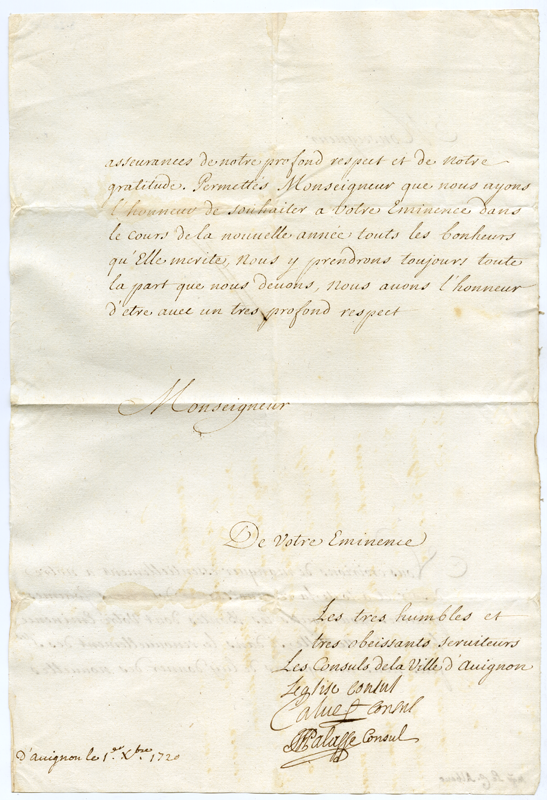 asseurances de notre profond respect et de notre
gratitude. Permettés Monseigneur que nous ayons
l'honneur de souhaiter a Votre Eminence dans
le cours de la nouvelle année touts les bonheurs
qu'Elle merite, Nous y prendrons toujours toute
la part que nous devons, nous avons l'honneur
d'etre avec un tres profond respect
Monseigneur
De Votre Eminence
Les tres humbles et
tres obeissants serviteurs
Les Consuls de la Ville d'Avignon
Leglise Consul
Calvet Consul
Palasse Consul
D'avignon le 1er. Xbre 1720